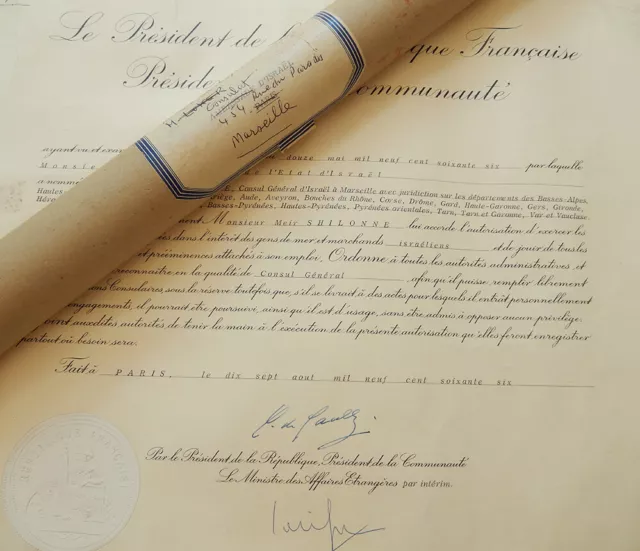 Le Président de que Française
Préside ommunauté
Consulat D'ISRAËL
454 Rue du Paradis
Marseille
ayant vu et exa douze mai mil neuf cent soixante six par laquelle
Monsie e l'Etat d'Israël
a nommé E, Consul Général d'Israël à Marseille avec juridiction sur les départements des Basses-Alpes,
Hautes riège, Aude, Aveyron, Bouches du Rhône, Corse, Drôme, Gard, Haute-Garonne, Gers, Gironde,
Héra Basses-Pyrénées, Hautes-Pyrénées, Pyrénées orientales, Tarn, Tarn et Garonne, Var et Vaucluse.
ment Monsieur Meir SHILONNE lui accorde l'autorisation d'exercer les
ées dans l'intérêt des gens de mer et marchands israéliens et de jouir de tous les
et prééminences attachés à son emploi. Ordonne à toutes les autorités administratives et
reconnaître en la qualité de Consul Général , afin qu'il puisse remplir librement
ons Consulaires, sous la réserve toutefois que, s'il se livrait à des actes pour lesquels il entrât personnellement
engagements, il pourrait être poursuivi, ainsi qu'il est d'usage, sans être admis à opposer aucun privilège.
oint auxdites autorités de tenir la main à l'exécution de la présente autorisation qu'elles feront enregistrer
partout où besoin sera.
Fait à PARIS, le dix sept aout mil neuf cent soixante six
C. de Gaulle
Par le Président de la République, Président de la Communauté
Le Ministre des Affaires Etrangères par intérim.